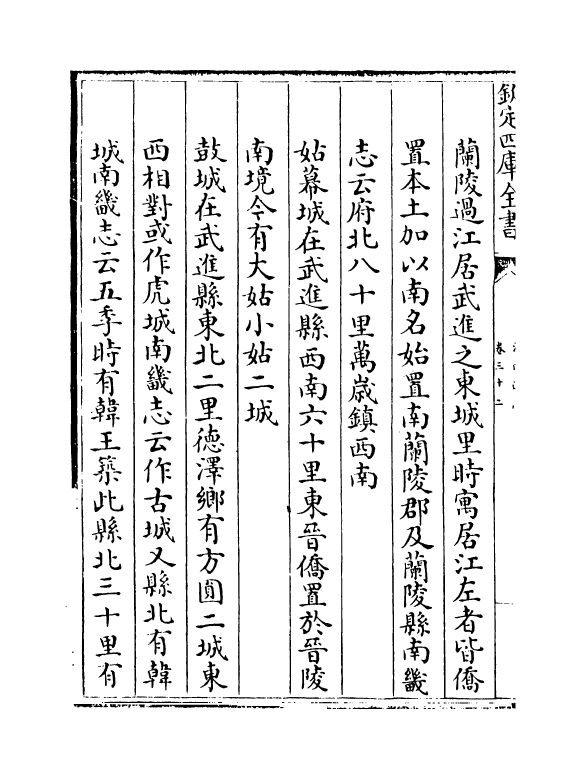 欽定四庫全書
卷三十二
蘭陵過江居武進之東城里時寓居江左者皆僑
置本土加以南名始置南蘭陵郡及蘭陵縣南畿
志云府北八十里萬歲鎮西南
姑幕城在武進縣西南六十里東晉僑置於晉陵
南境今有大姑小姑二城
鼓城在武進縣東北二里德澤鄉有方圓二城東
西相對或作虎城南畿志云作古城又縣北有韓
城南畿志云五季時有韓王築此縣北三十里有